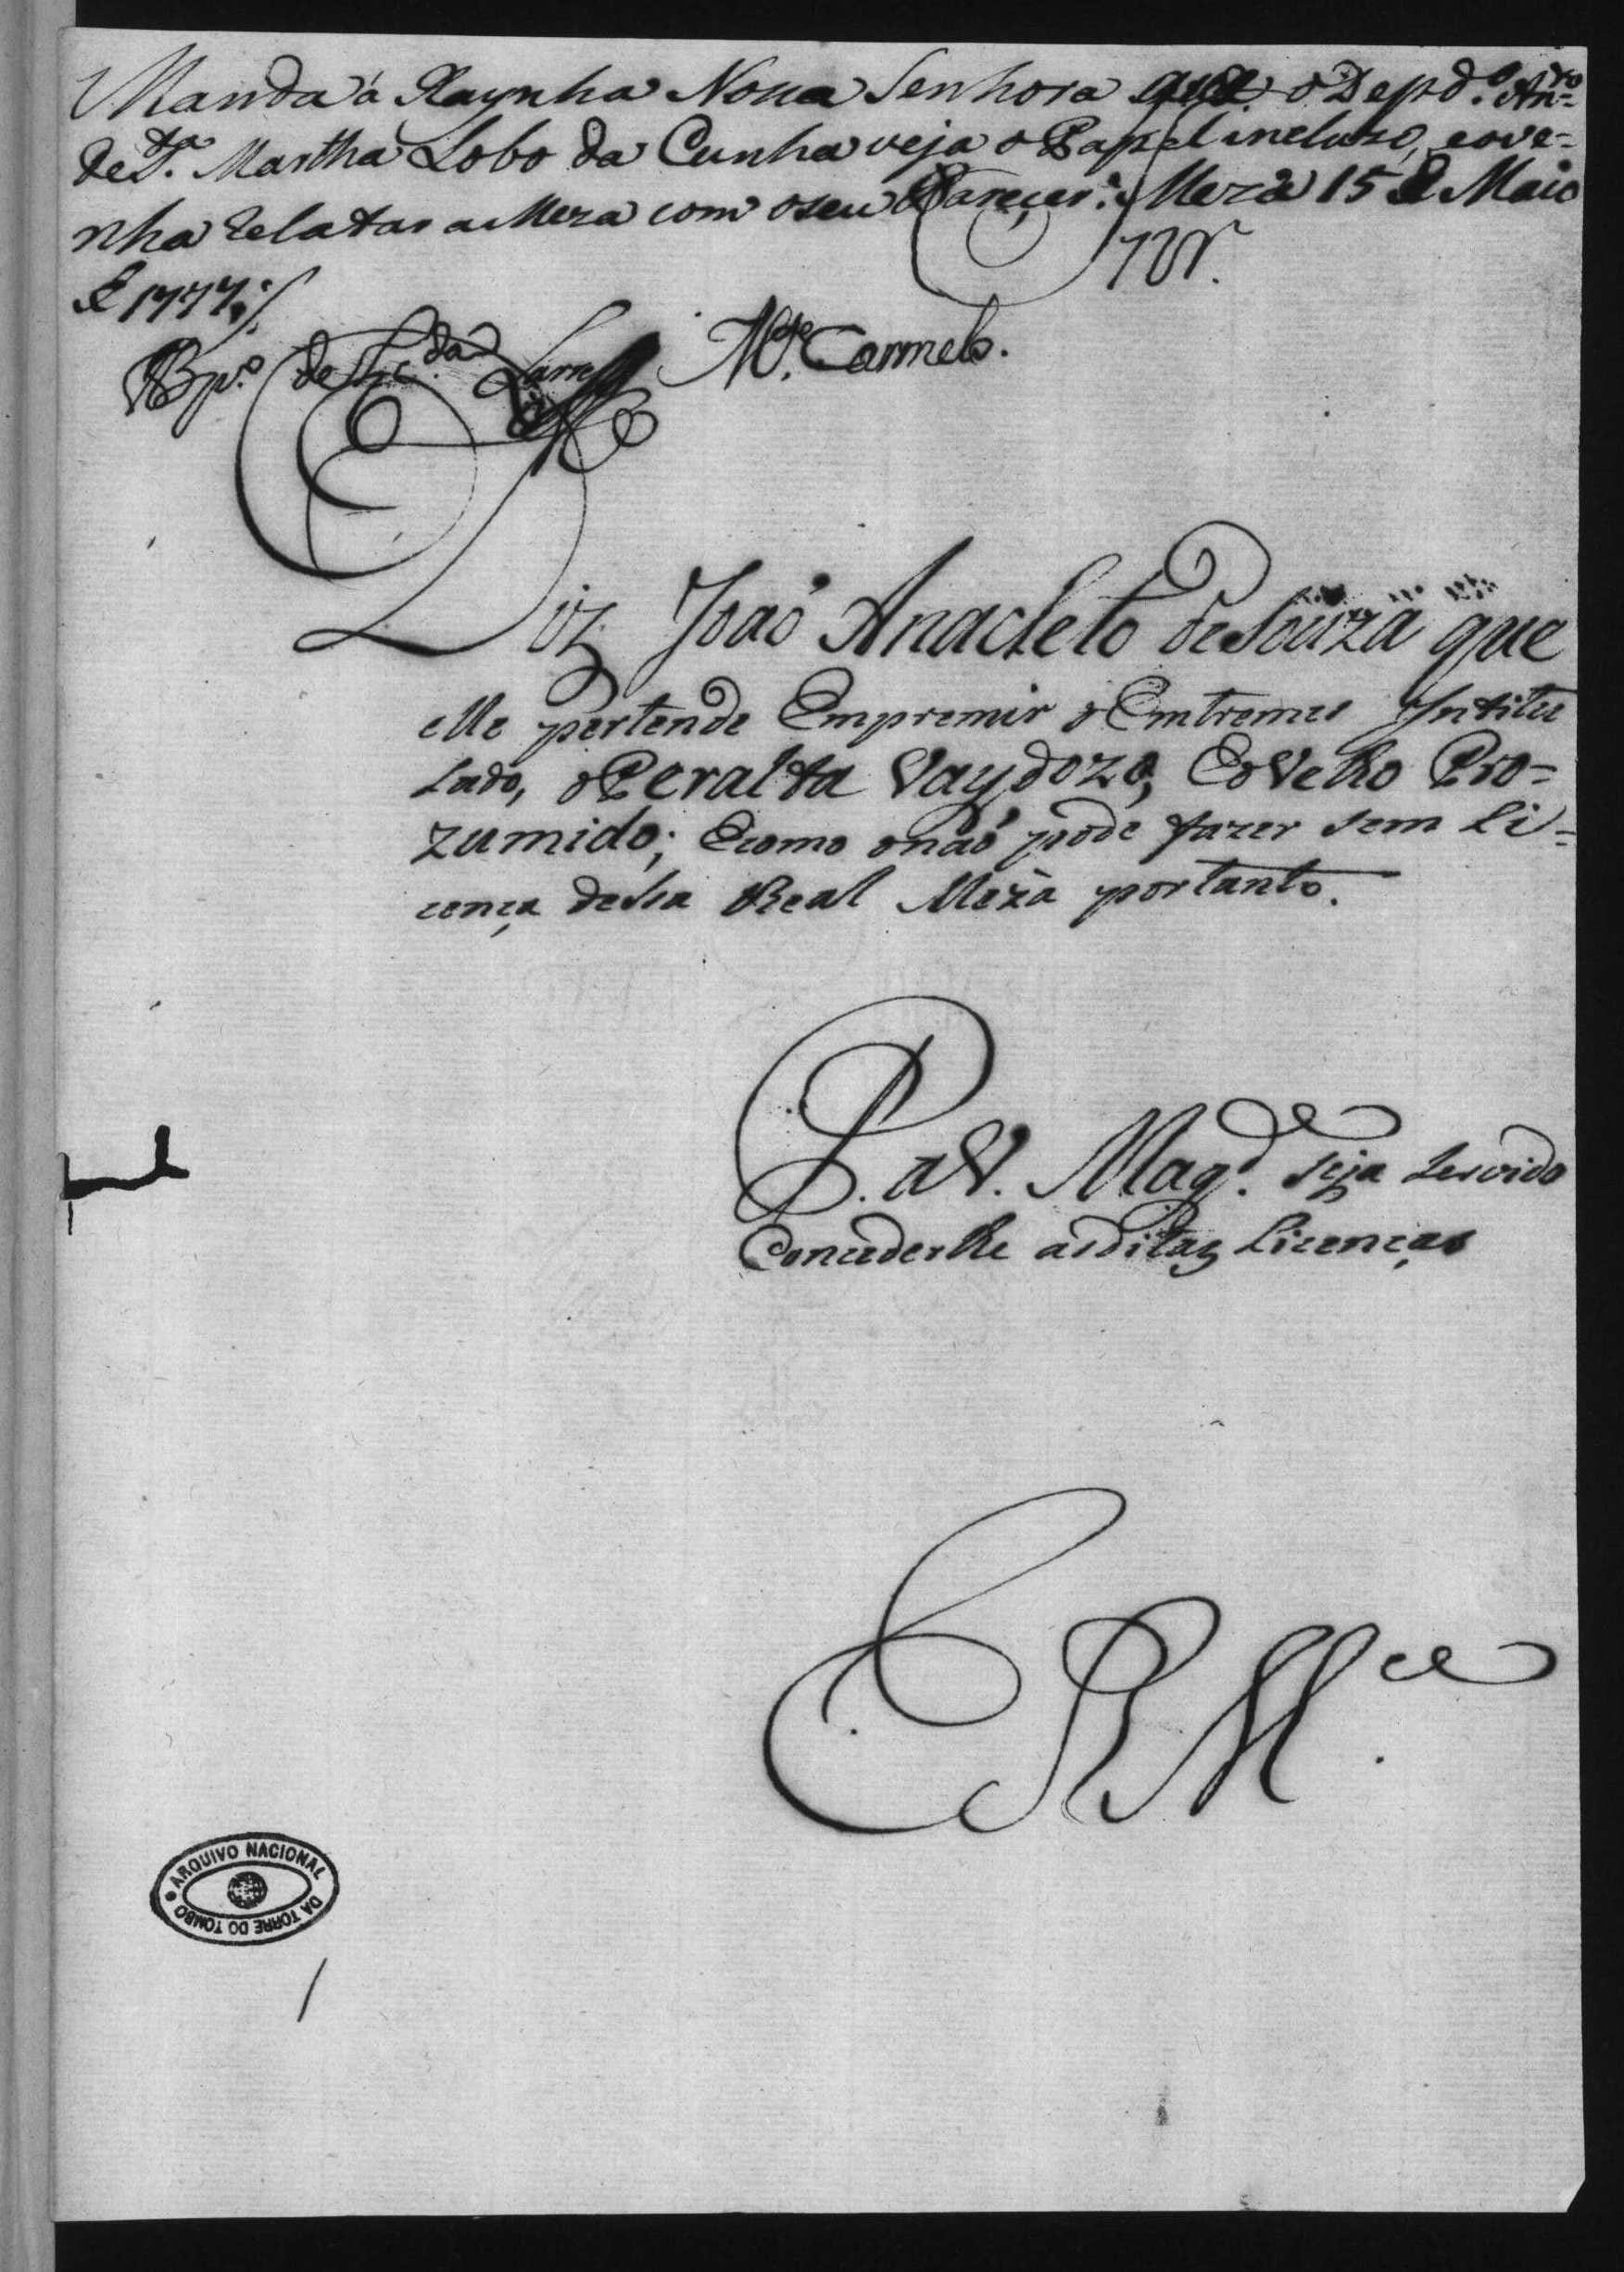 Manda á Raynha Nossa Senhora que o Depd.º An.to
de S.ta Martha Lobo da Cunha veja o Papel incluso, eove-
nha relatar a Meza com o seu Parecer. Meza 15 de Maio
de 1777
Bp.º de M.e Carmelo.
Diz João Anacleto de Souza que
elle pertende Empremir o Emtremes Intitu
lado, o Peralta Vaydozo, E o Velho Pro-
zumido; E como o não pode fazer sem Li-
cença desta Real Meza portanto.
P. a V. Mag.de seja servido
Concederlhe as ditas Licenças
E R M.ce
ARQUIVO NACIONAL DA TORRE DO TOMBO
1